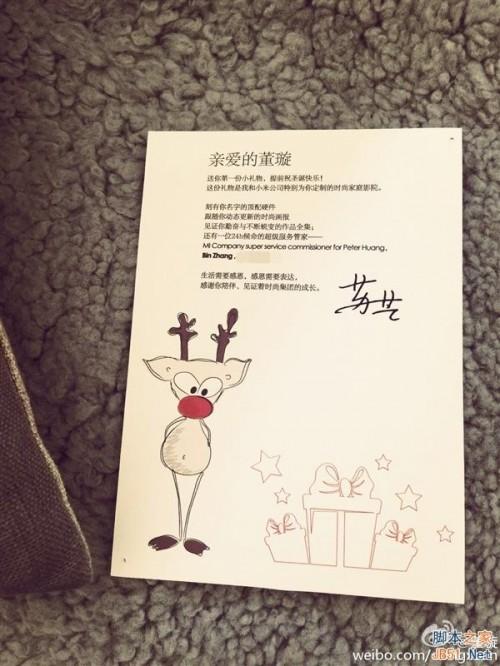 亲爱的董璇
送你第一份小礼物，提前祝圣诞快乐！
这份礼物是我和小米公司特别为你定制的时尚家庭影院。
刻有你名字的顶配硬件
跟随你动态更新的时尚画报
见证你勤奋与不断蜕变的作品全集；
还有一位24h候命的超级服务管家——
MI Company super service commissioner for Peter Huang,
Bin Zhang,
生活需要感恩，感恩需要表达，
感谢你陪伴、见证着时尚集团的成长。
苏芒
脚本之家
JB51.Net
weibo.com/